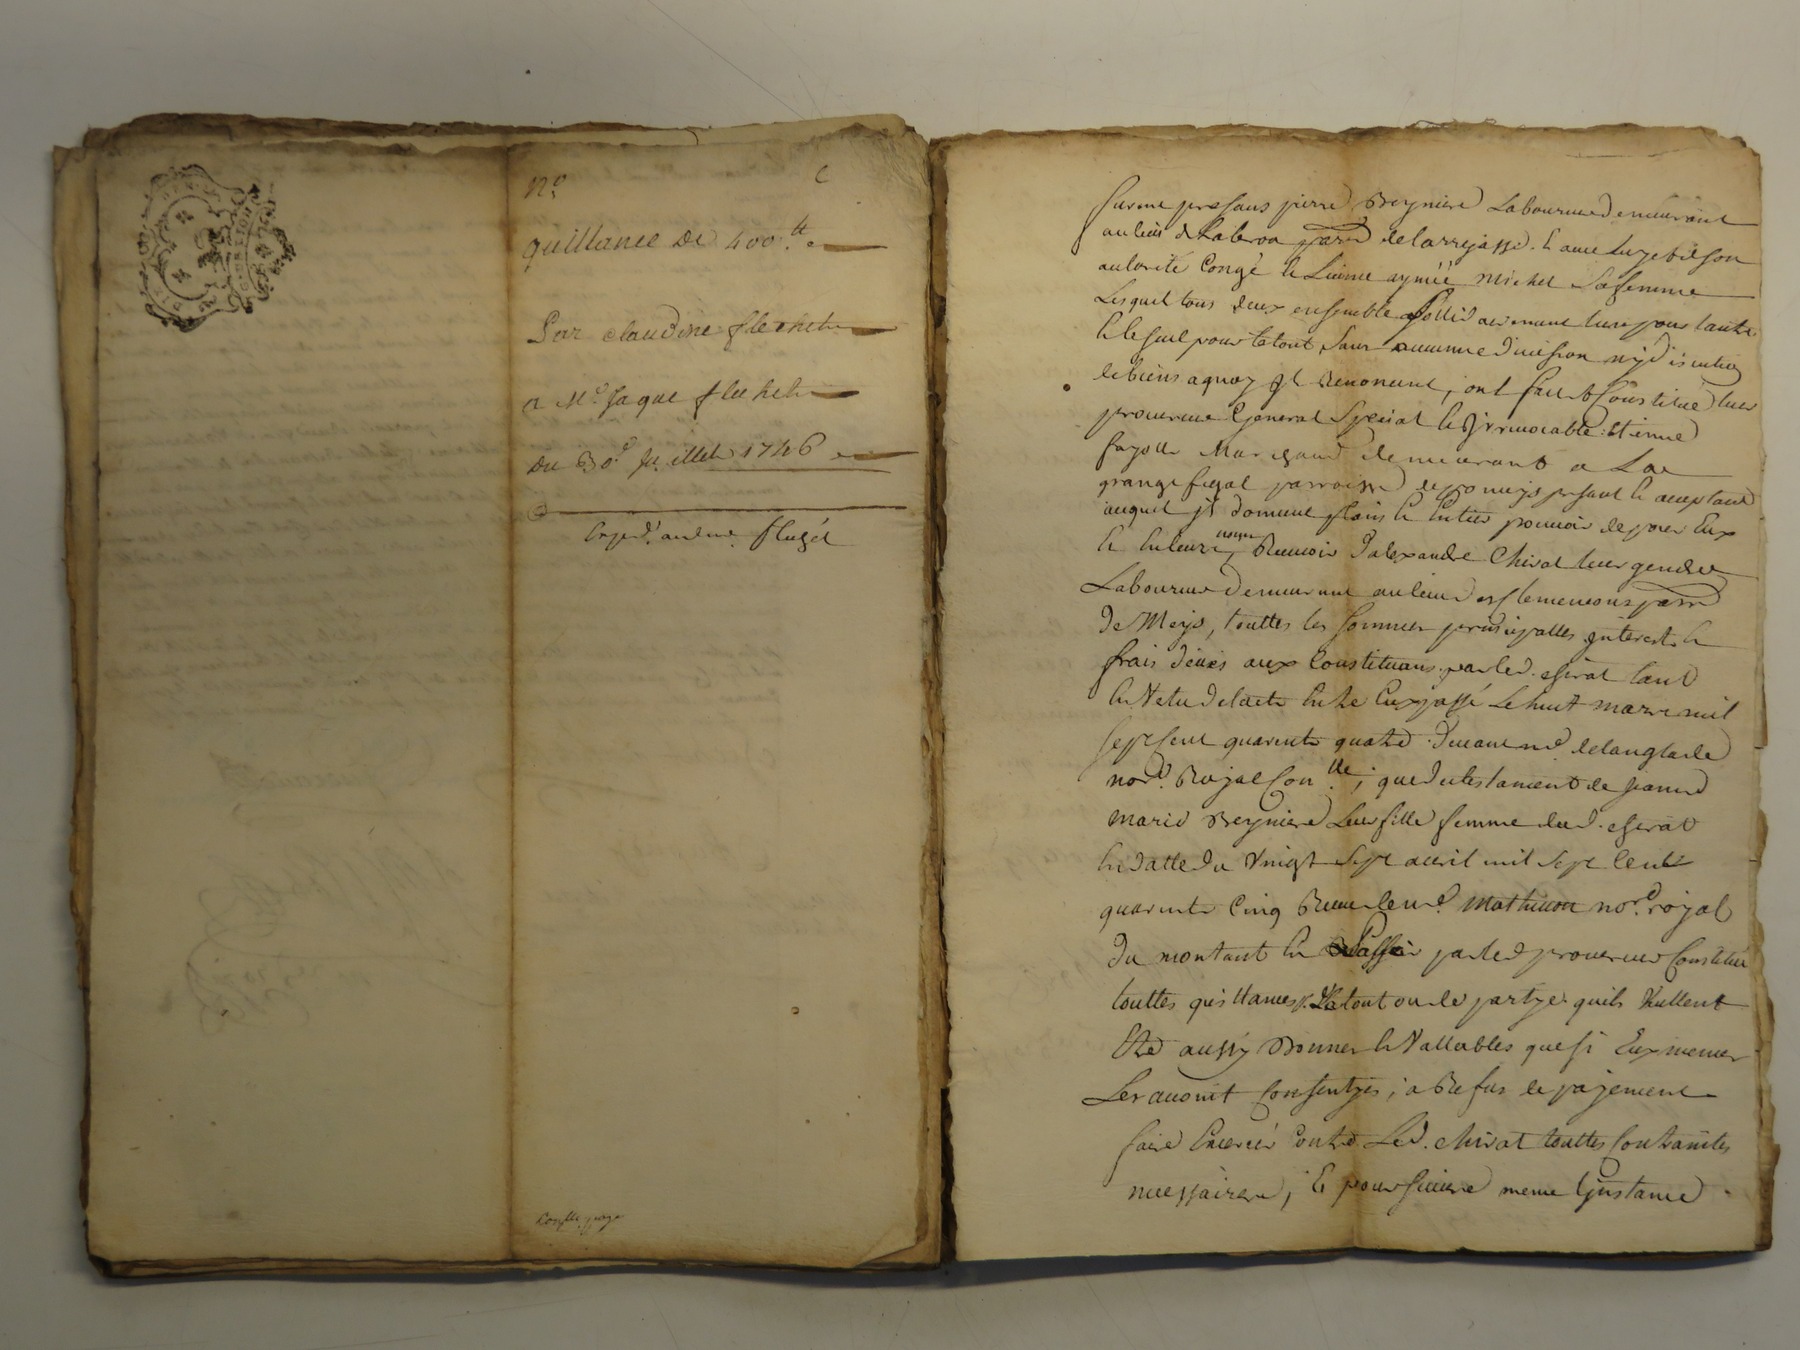 N.o
quittance de 400.tt
Par claudine flechet
a M.e Jaque flechet
du 30.e Juillet 1746
Exped.
Con.lle
furent presans pierre Reyniere Laboureur demeurant
au lieu de parr. de larrajasse. & avec luy de son
autorité Congé & Licence aymée Michel Sa femme
Lesquel tous deux ensemble Sollidairement lun pour lautre
& le Seul pour le tout, Sans aucunne division ny discution
de biens a quoy Jls Renoncent, ont fait & Constitué leur
procureur General Special & Jrrevocable Etienne
fayolle Marchand demeurant a La
grange parroisse de pomeys presant & aceptant
auquel Jls donnent plain & Entier pouvoir de pour Eux
& En leur nom Recevoir d'alexandre Chirat leur gendre
Laboureur demeurant au lieu parr.
de Meys, touttes les Sommes principalles Jnterests &
frais deües aux Constituans par led. chirat tant
En Vetu de lacte Entre Eux passé Le huit mars mil
Sept Cent quarente quatre devant m.e delanglade
no.re Royal Con.lle, que du testament de Jeanne
marie Reyniere Leur fille femme dud. chirat
En datte du Vingt Sept avril mil Sept Cents
quarente Cinq Receu led. m.e mathevon no.re royal
du montant En passer par led. procureur Constitué
touttes quittances du tout ou de partye quils Veullent
Etre aussy Bonnes & Vallables que si Eux memes
Les avoint Consentyes; a Refus de pajement
faire Exercer Contre Led. chirat touttes Contraintes
necessaires; & poursuivre meme Instance